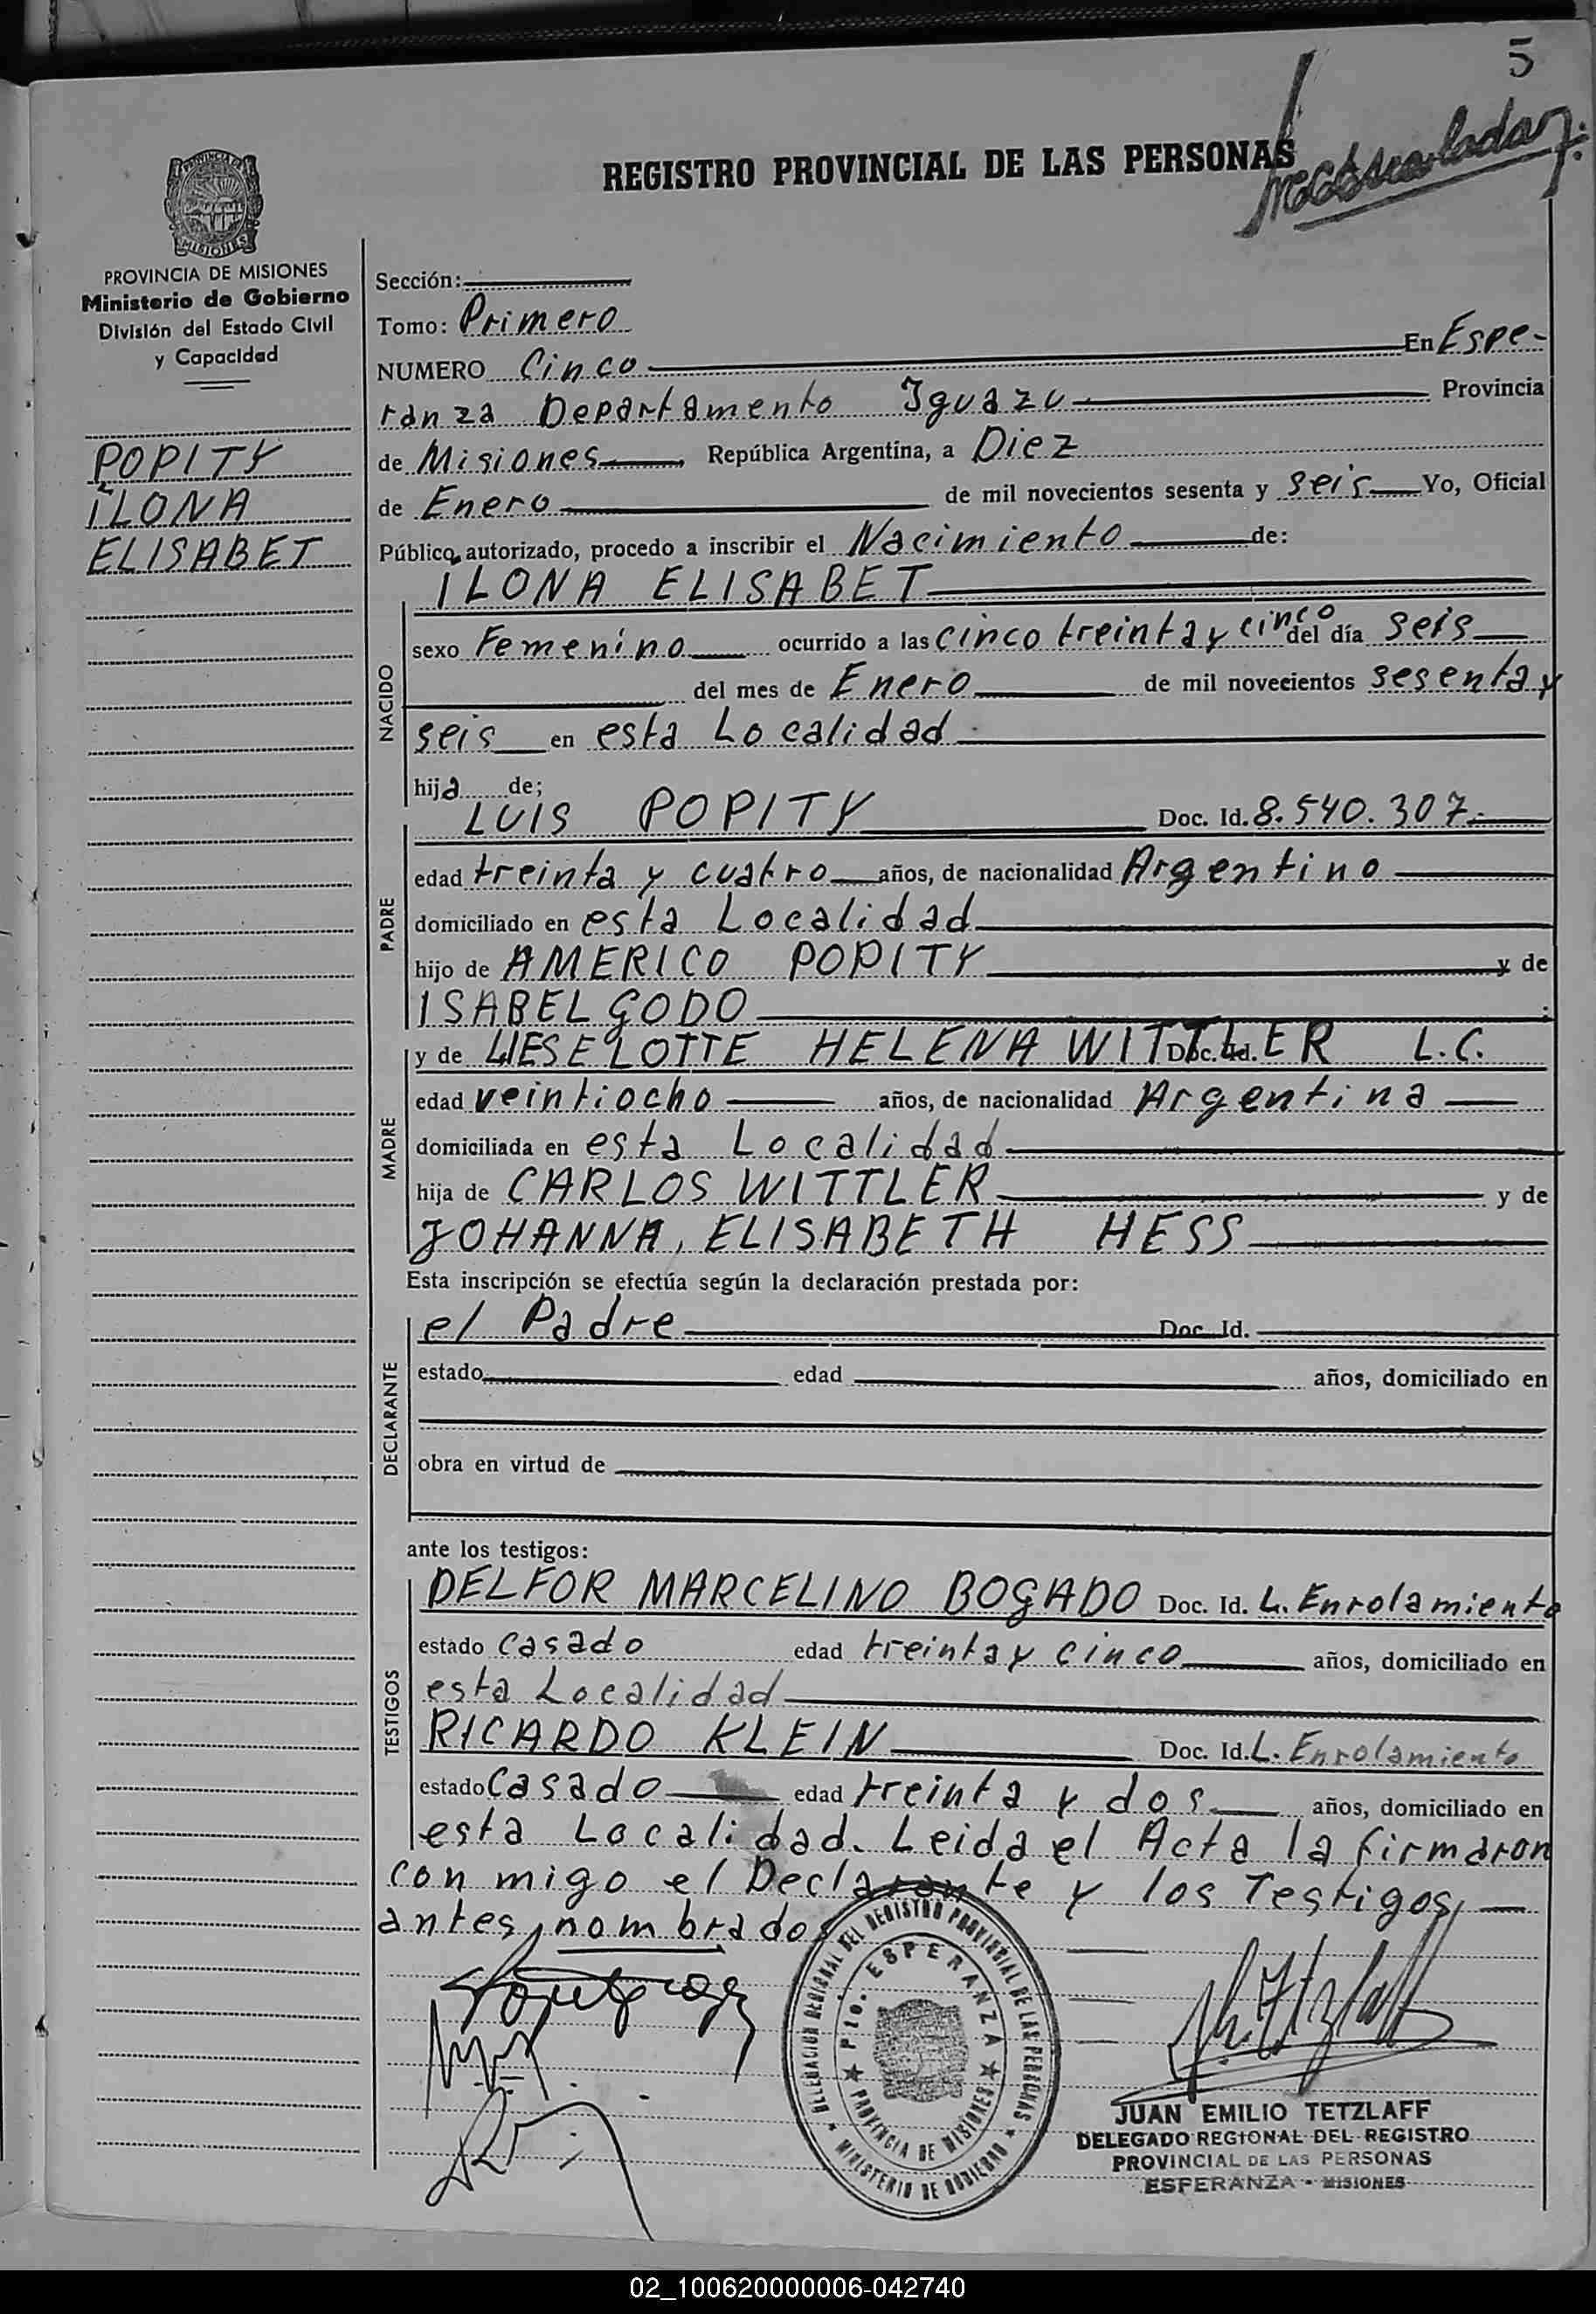 5
REGISTRO PROVINCIAL DE LAS PERSONAS
PROVINCIA DE
MISIONES
PROVINCIA DE MISIONES
Ministerio de Gobierno
División del Estado Civil
y Capacidad
POPITY
ILONA
ELISABET
Sección:
Tomo: Primero
NUMERO Cinco En Espe-
ranza Departamento Iguazu Provincia
de Misiones República Argentina, a Diez
de Enero de mil novecientos sesenta y seis Yo, Oficial
Público autorizado, procedo a inscribir el Nacimiento de:
ILONA ELISABET
NACIDO
sexo Femenino ocurrido a las cinco treinta y cinco del día seis
del mes de Enero de mil novecientos sesenta y
seis en esta Localidad
hija de;
LUIS POPITY Doc. Id. 8.540.307.
PADRE
edad treinta y cuatro años, de nacionalidad Argentino
domiciliado en esta Localidad
hijo de AMERICO POPITY y de
ISABEL GODO
y de LIESELOTTE HELENA WITTLER Doc. Id. L.C.
MADRE
edad veintiocho años, de nacionalidad Argentina
domiciliada en esta Localidad
hija de CARLOS WITTLER y de
JOHANNA, ELISABETH HESS
Esta inscripción se efectúa según la declaración prestada por:
el Padre Doc. Id.
DECLARANTE
estado edad años, domiciliado en
obra en virtud de
ante los testigos:
DELFOR MARCELINO BOGADO Doc. Id. L. Enrolamiento
TESTIGOS
estado Casado edad treinta y cinco años, domiciliado en
esta Localidad
RICARDO KLEIN Doc. Id. L. Enrolamiento
estado Casado edad treinta y dos años, domiciliado en
esta Localidad. Leida el Acta la firmaron
con migo el Declarante y los Testigos,
antes nombrados
DELEGACION REGIONAL DEL REGISTRO PROVINCIAL DE LAS PERSONAS
MINISTERIO DE GOBIERNO
Pto. ESPERANZA
PROVINCIA DE MISIONES
JUAN EMILIO TETZLAFF
DELEGADO REGIONAL DEL REGISTRO
PROVINCIAL DE LAS PERSONAS
ESPERANZA - MISIONES
02_100620000006-042740